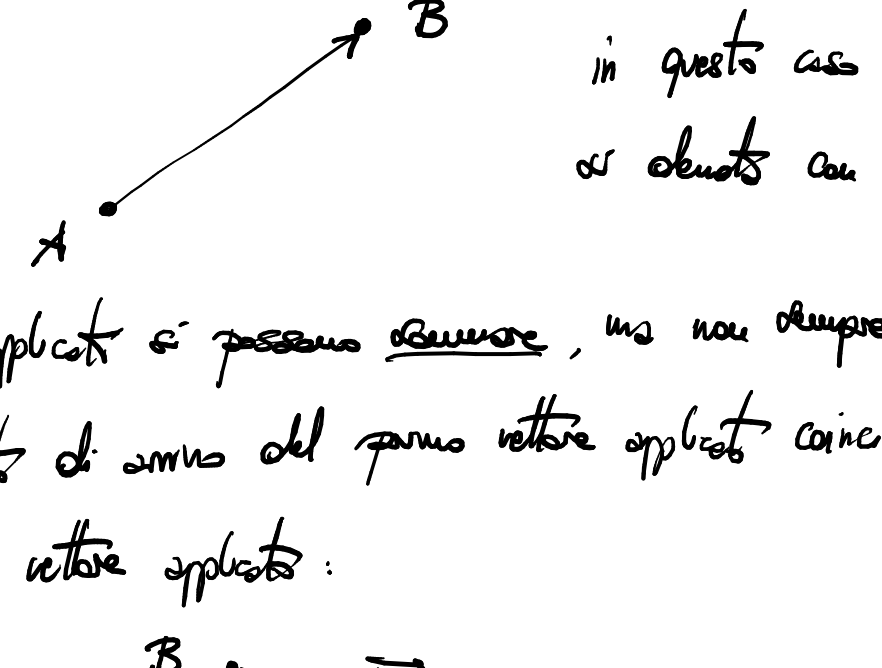 B
in questo caso
si denota con
A
applicati si possono sommare, ma non sempre
di arrivo del primo vettore applicato coinc
vettore applicato:
B